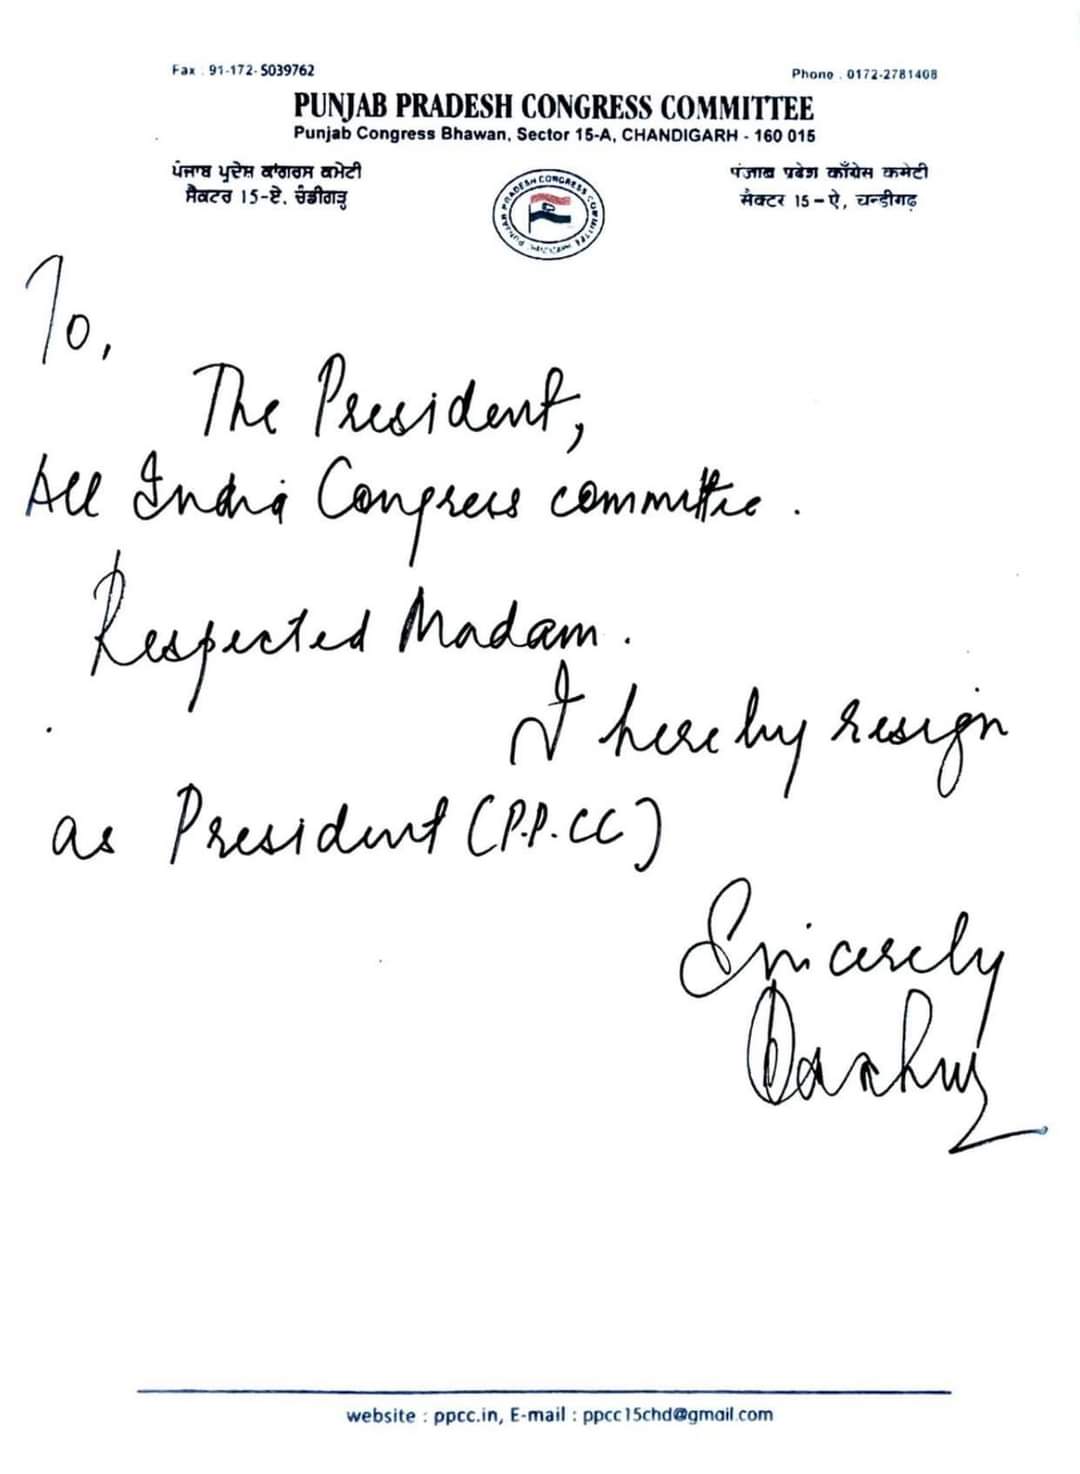 Fax : 91-172-5039762
Phone : 0172-2781408
PUNJAB PRADESH CONGRESS COMMITTEE
Punjab Congress Bhawan, Sector 15-A, CHANDIGARH - 160 015
ਪੰਜਾਬ ਪ੍ਰਦੇਸ਼ ਕਾਂਗਰਸ ਕਮੇਟੀ
ਸੈਕਟਰ 15-ਏ, ਚੰਡੀਗੜ੍ਹ
PUNJAB PRADESH CONGRESS COMMITTEE
पंजाब प्रदेश काँग्रेस कमेटी
सैक्टर 15-ऐ, चन्डीगढ़
To,
The President,
All India Congress committee.
Respected Madam.
I hereby resign
as President (P.P.CC)
Sincerely
website : ppcc.in, E-mail : ppcc15chd@gmail.com